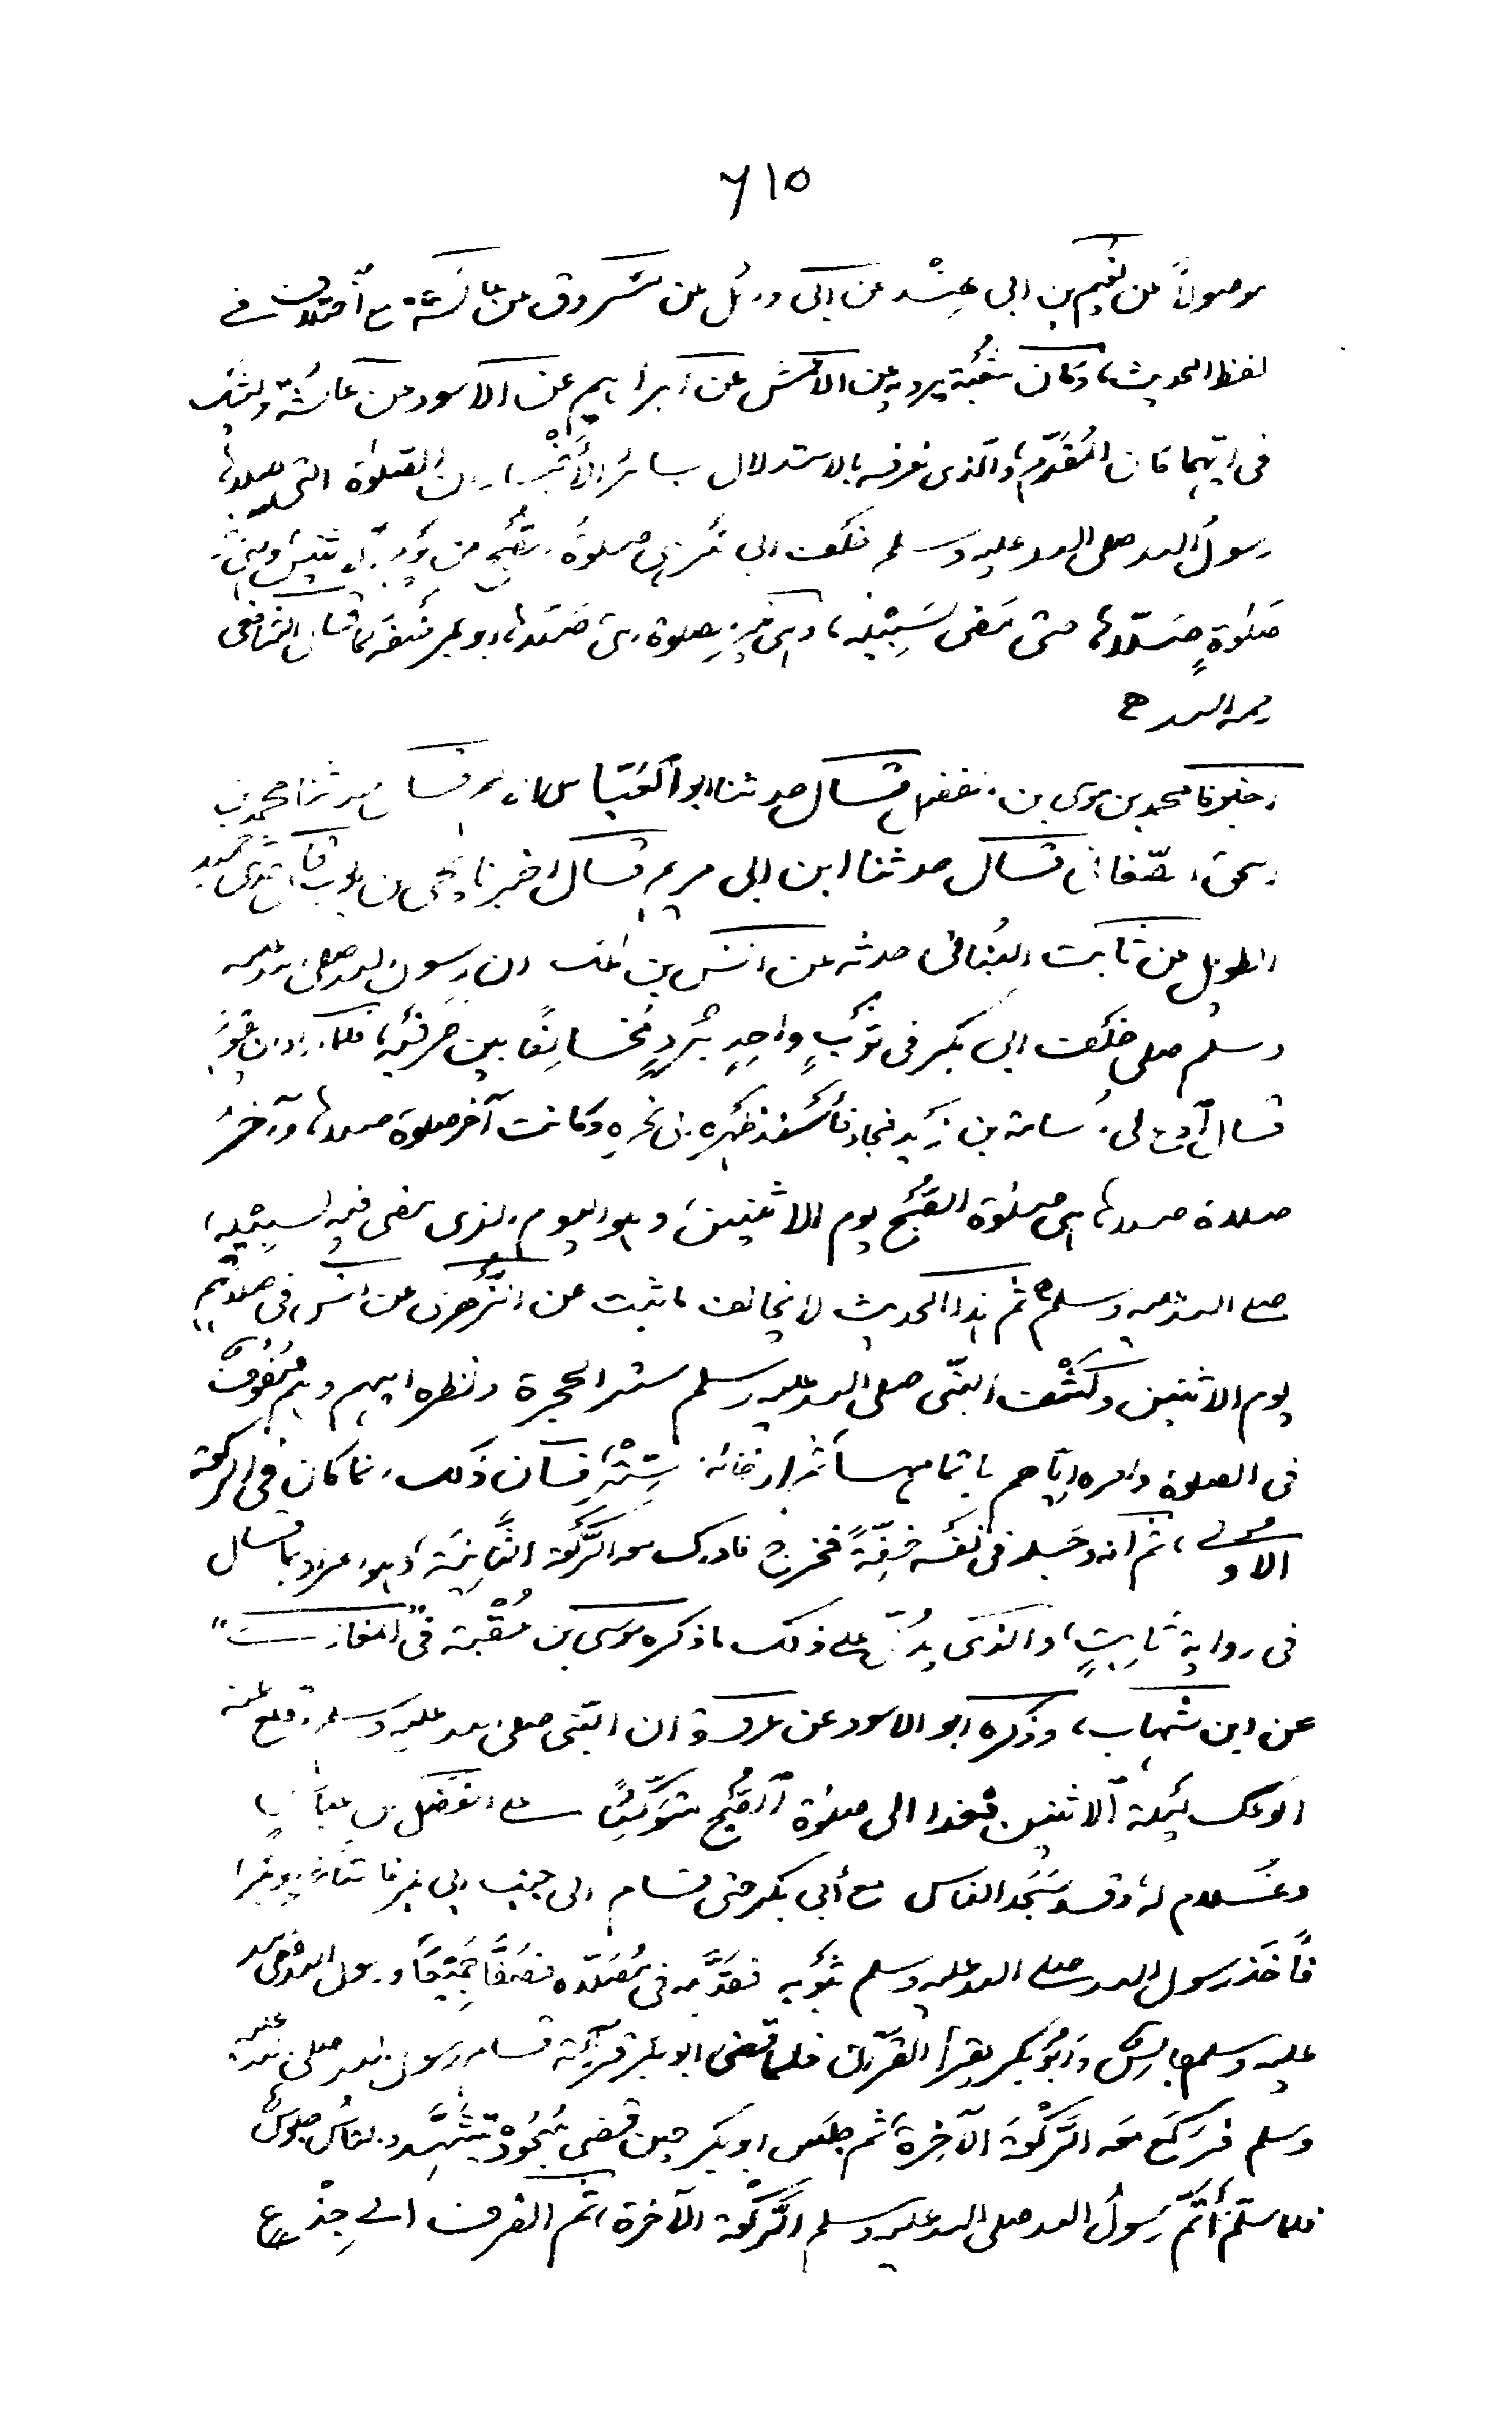 ٦١٥
موصولاً عن نُعَيم بن ابى هِنْد عن ابى وائل عن مَسروق عن عائشة مع اختلاف فى
لفظ الحديث، وكان شُعْبة يرويه عن الأعمش عن ابراهيم عن الاسود عن عائشة ويشك
فى ايّهما كان المُقَدَّم، والّذى نعرفه بالاستدلال بسائر الأخْبار ان الصلوٰة التى صلاها
رسولُ الله صلى الله عليه وسلم خلف ابى بكر هى صلوٰةُ الصُّبح من يوم الاثنين وهى آخر
صَلوٰةٍ صَلّاها حتى مَضى لسَبِيْلِه، وهى غير صلوة التى صَلّاها ابو بكر خَلفَه كما قال الشافعى
رحمه الله ح
اخبرنا محمد بن موسى بن الفضل قال حدثنا ابو العَبّاس الاصم قال حدثنا محمد بن
اسحق الصّغانى قال حدثنا ابن ابى مريم قال اخبرنا يحيى بن ايوب قال حدثنى حُميد
الطويل عن ثابت البُنانى حدثه عن انس بن مالك ان رسول الله صلى الله عليه
وسلم صلى خلف ابى بكر فى ثوبٍ واحِدٍ بُردٍ مُخالِفًا بين طرفَيْه، فلما اراد ان يقومَ
قال ادع لى اُسامة بن زَيد فجاء فأَسْنَدَ ظهره الى نحْرِهِ وكانت آخر صلوة صلاها، وآخرُ
صلاة صلاها هى صلوٰة الصُّبح يوم الاثنين، وهو اليوم الذى مضى فيه لسبِيْلِه،
صلى الله عليه وسلم ثم هذا الحديث لا يخالف ما ثبت عن الزُّهرى عن انس فى صلاتهم
يوم الاثنين وكَشْف النبّى صلى الله عليه وسلم ستر الحجرة ونظره اليهم وهم صُفُوفٌ
فى الصلوة وامره ايّاهم باتمامها ثم ارخائه سِتْر فان ذلك انما كان فى الركعة
الاولى، ثم انه وَجَد فى نفسه خِفّةً فخرج فادرك معه الرَّكعة الثَّانِيَة، وهو المراد بما قال
فى رواية ثابِتٍ، والذى يدُلّ على ذلك ما ذكره موسى بن عُقْبة فى "المغازى"
عن ابن شهاب، وذكره ابو الاسود عن عروة ان النبّى صلى الله عليه وسلم اقلع عنه
الوعك ليلة الاثنين فغدا الى صلوٰة الصُّبح متوكِّئًا على الفضل بن عبّاس
وغُلام له، وقد سَجَد الناس مع أبى بكر حتى قام الى جنب ابى بكر فاستأخر ابو بكر
فأخَذ رسول الله صلى الله عليه وسلم بثوبه فقدَّمه فى مُصَلّاه فصَفَّا جَمِيعًا ورسول الله صلى الله
عليه وسلم جالسٌ وابوْ بكر يقرأ القرآن فلما قضى ابو بكر قرآنه قام رسول الله صلى الله عليه
وسلم فركَعَ معه الرَّكْعَة الآخِرة، ثم جلس ابو بكر حين قضى سُجُودَه يَتَشَهّد والناسُ جلوسٌ
فلما سَلّم أَتَمَّ رَسولُ الله صلى الله عليه وسلم الرَّكْعة الآخرة، ثم انصرف الى جِذْعٍ